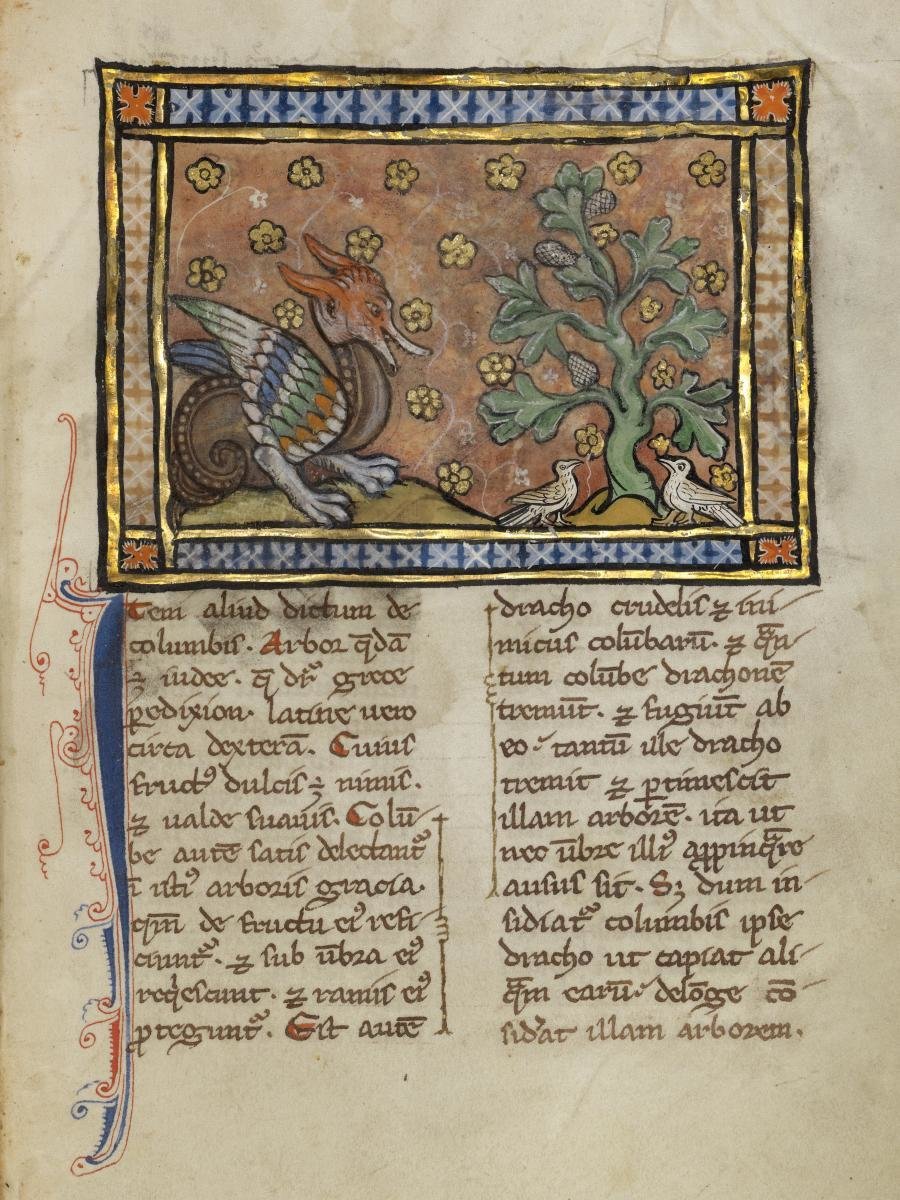 Item aliud dictum de
columbis. Arbor q̄dā
ē in idee. q̄ dr̄ grece
ꝑedixion. latine uero
circa dexterā. Cuius
fructꝰ dulcis ē nimis.
⁊ ualde suauis. Colū-
be autē satis delectant᷑
ī istiꝰ arboris gracia.
qm̄ de fructu eiꝰ refi-
ciunt᷑. ⁊ sub ūbra eiꝰ
reqͥescunt. ⁊ ramis eiꝰ
ꝓtegunt᷑. Est autē
dracho crudelis ⁊ ini-
micus colūbarū. ⁊ qᷓn-
tum colūbe drachonē
tremūt. ⁊ fugiūt ab
eo. tantū ille dracho
tremit ⁊ ꝑtimescit
illam arborē. ita ut
nec ūbre illiꝰ apꝓpinqᷓre
ausus sit. Sꝫ dum in-
sidiat᷑ columbis ipse
dracho ut capiat ali-
qᷓm earū. delōge cō-
sid̾at illam arborem.